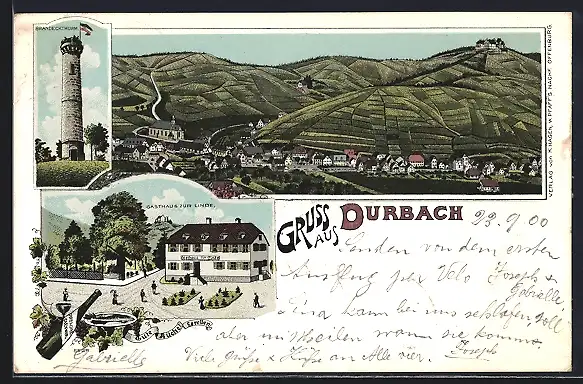 BRANDECKTHURM
GASTHAUS ZUR LINDE.
Gasthaus zur Linde
VERLAG von K. HAGEN, W. PFAFF'S NACHF. OFFENBURG.
GRUSS AUS DURBACH
23.9.00
Senden von dem ersten
Ausflug per Velo Joseph &
Gabrielle
kann bei uns schlafen, soll
aber mitteilen wann sie kommt.
Viele Grüße & Küsse an Alle vier. Joseph
Gabrielle
Gute Küche